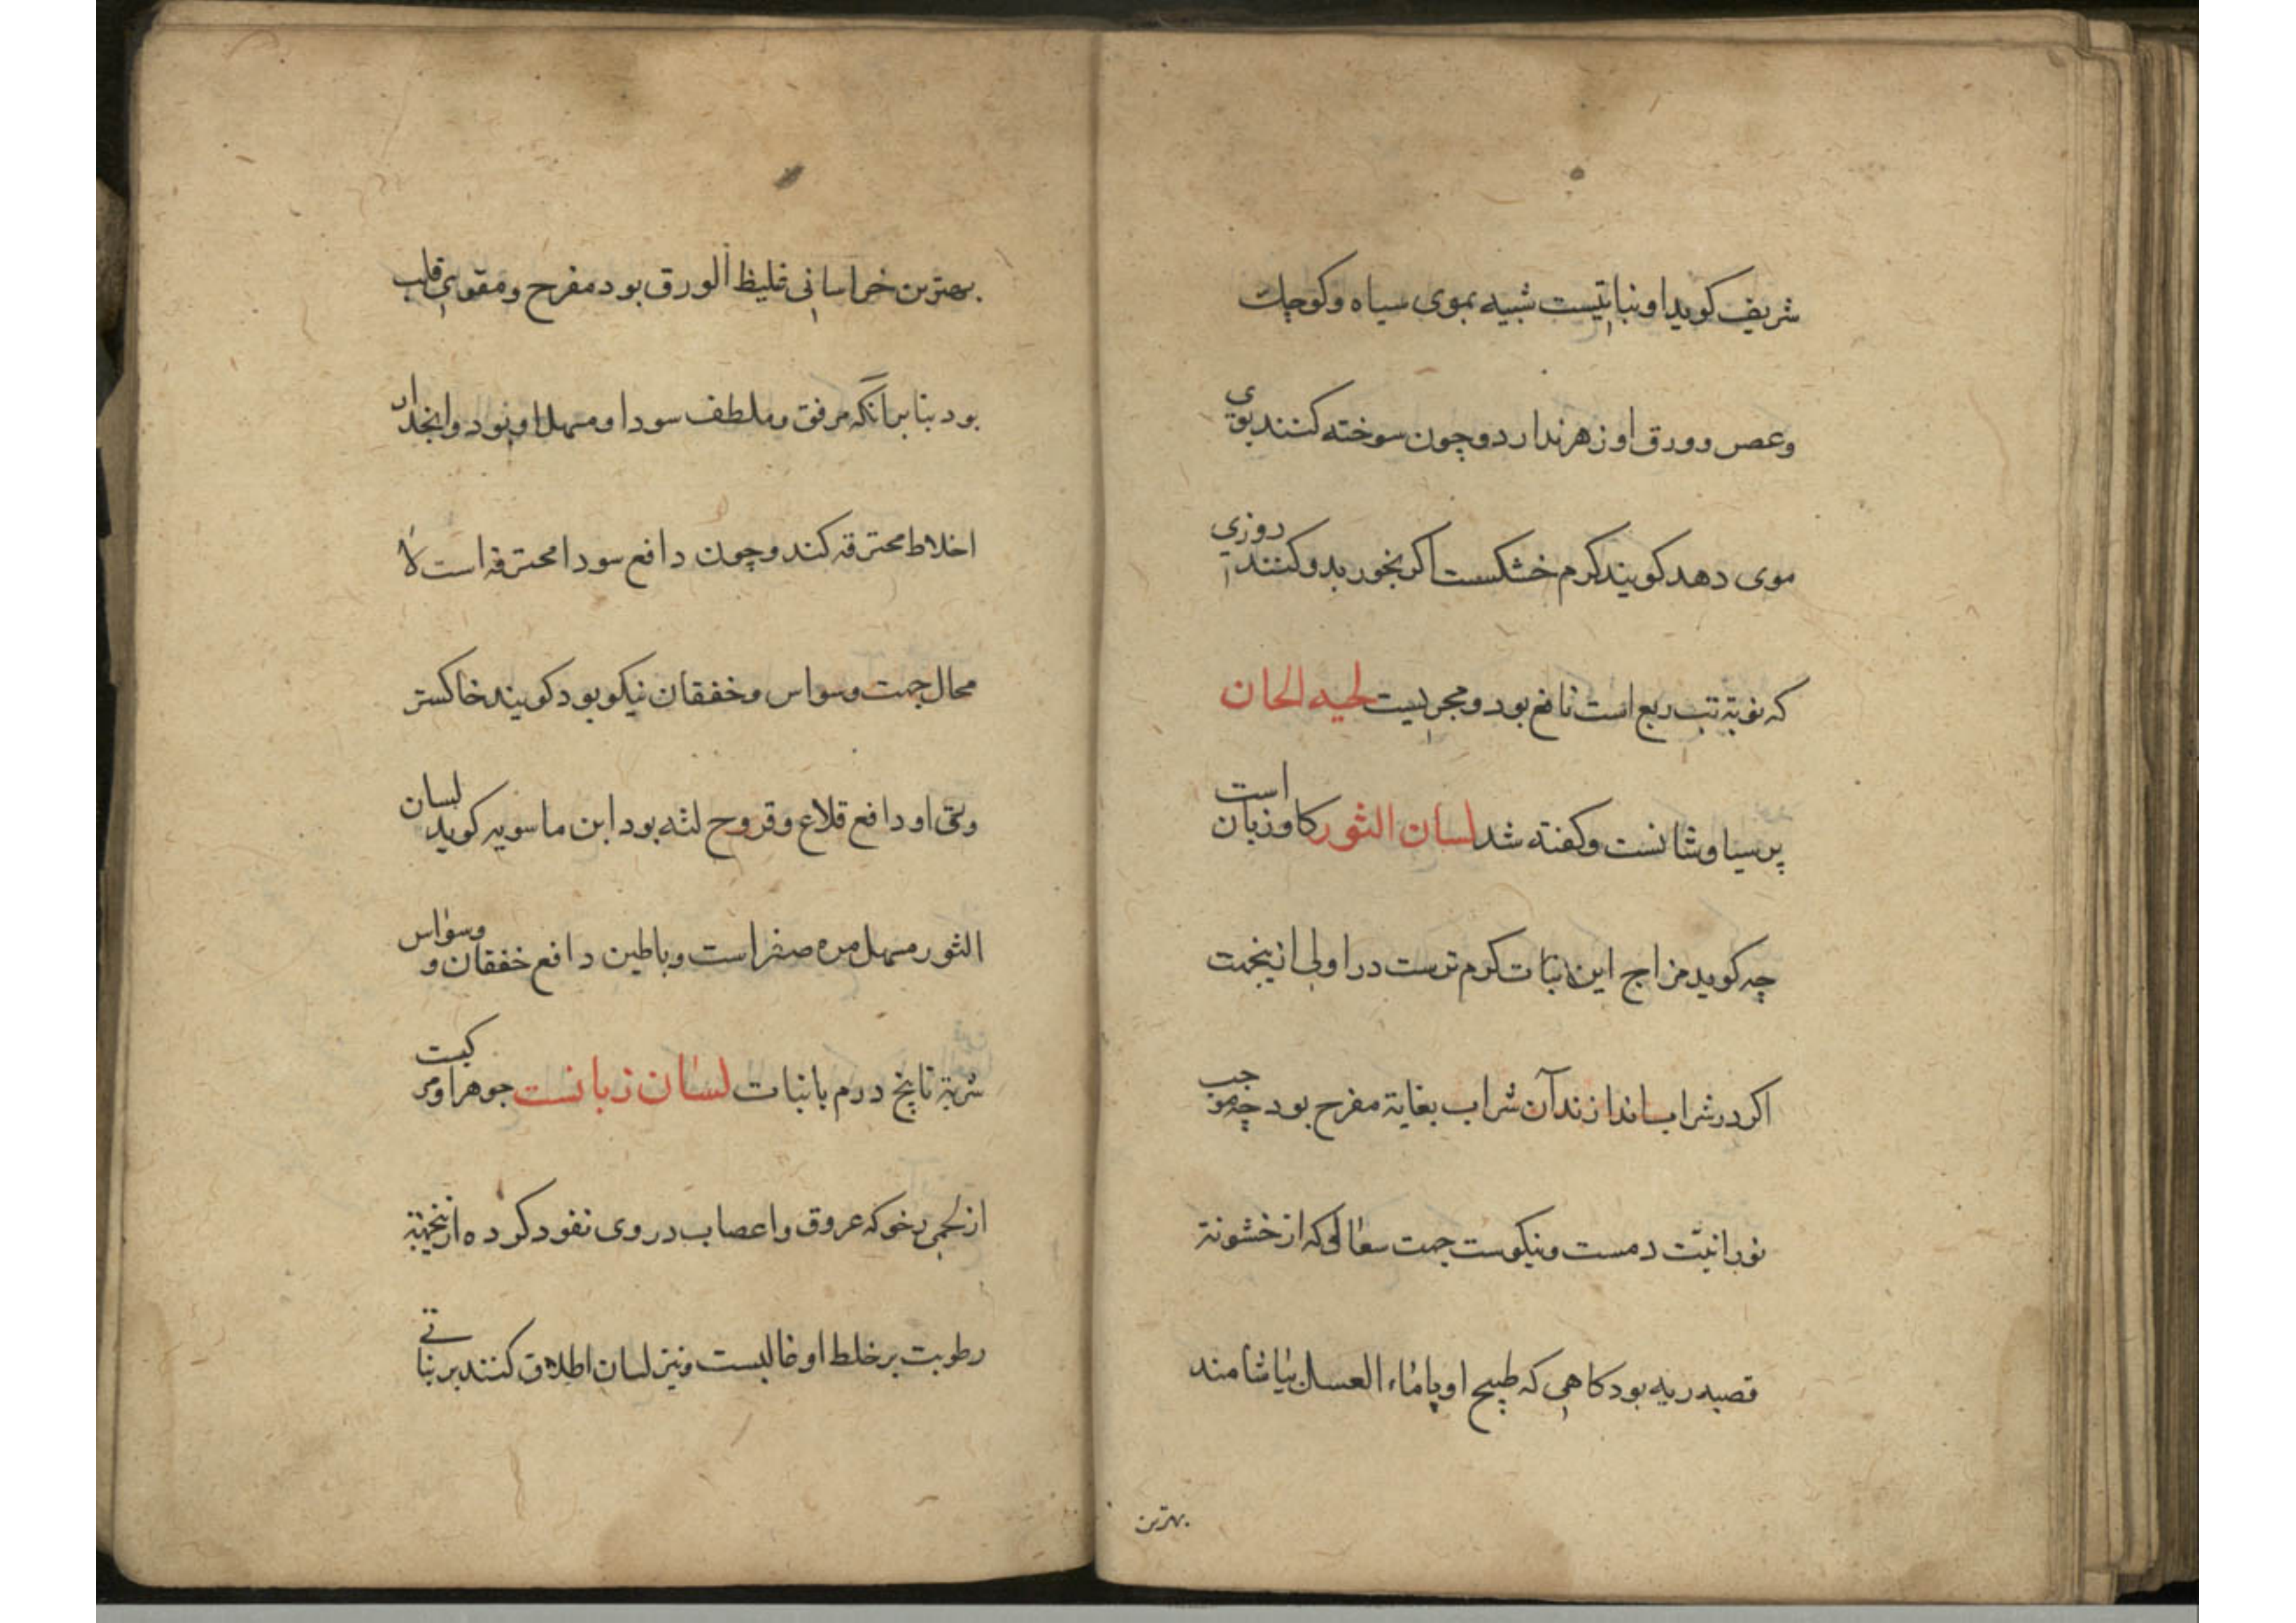 شریف کوید او نباتیست شبیه بموی سیاه وکوچک
وعصر وورق او زهر ندارد وچون سوخته کنند بوی
موی دهد کویند کرم خشکست اکر بخور بدو کنند روزی
که نوبة تب ربع است نافع بود ومجربست لحیه الحان
پرسیاوشانست وکفته شد لسان الثور کاوزبان است
چه کوید مزاج این نبات کرم ترست در اولی ازینجهت
اکر در شراب اندازند آن شراب بغایة مفرح بود چه موجب
نورانیت دمست ونیکوست جهت سعالی که از خشونة
قصبه ریه بود کاهی که طبیخ او باماء العسل بیاشامند
بهترین
بهترین خراسانی غلیظ الورق بود مفرح ومقوی قلب
بود بنا برانکه مرفق وملطف سودا ومسهل او بود وانحدار
اخلاط محترقه کند وچون دافع سودا محترقه است لا
محال جهت وسواس وخفقان نیکو بود کویند خاکستر
وی او دافع قلاع وقروح لثه بود ابن ماسویه کوید لسان
الثور مسهل مره صفر است وباطین دافع خفقان و وسواس
شربة تا پنج درم با نبات لسان زبانست جوهر او مرکبست
از لحمی رخو که عروق واعصاب در وی نفود کرده ازینجهة
رطوبت بر خلط او غالبست ونیز لسان اطلاق کنند بر نباتی